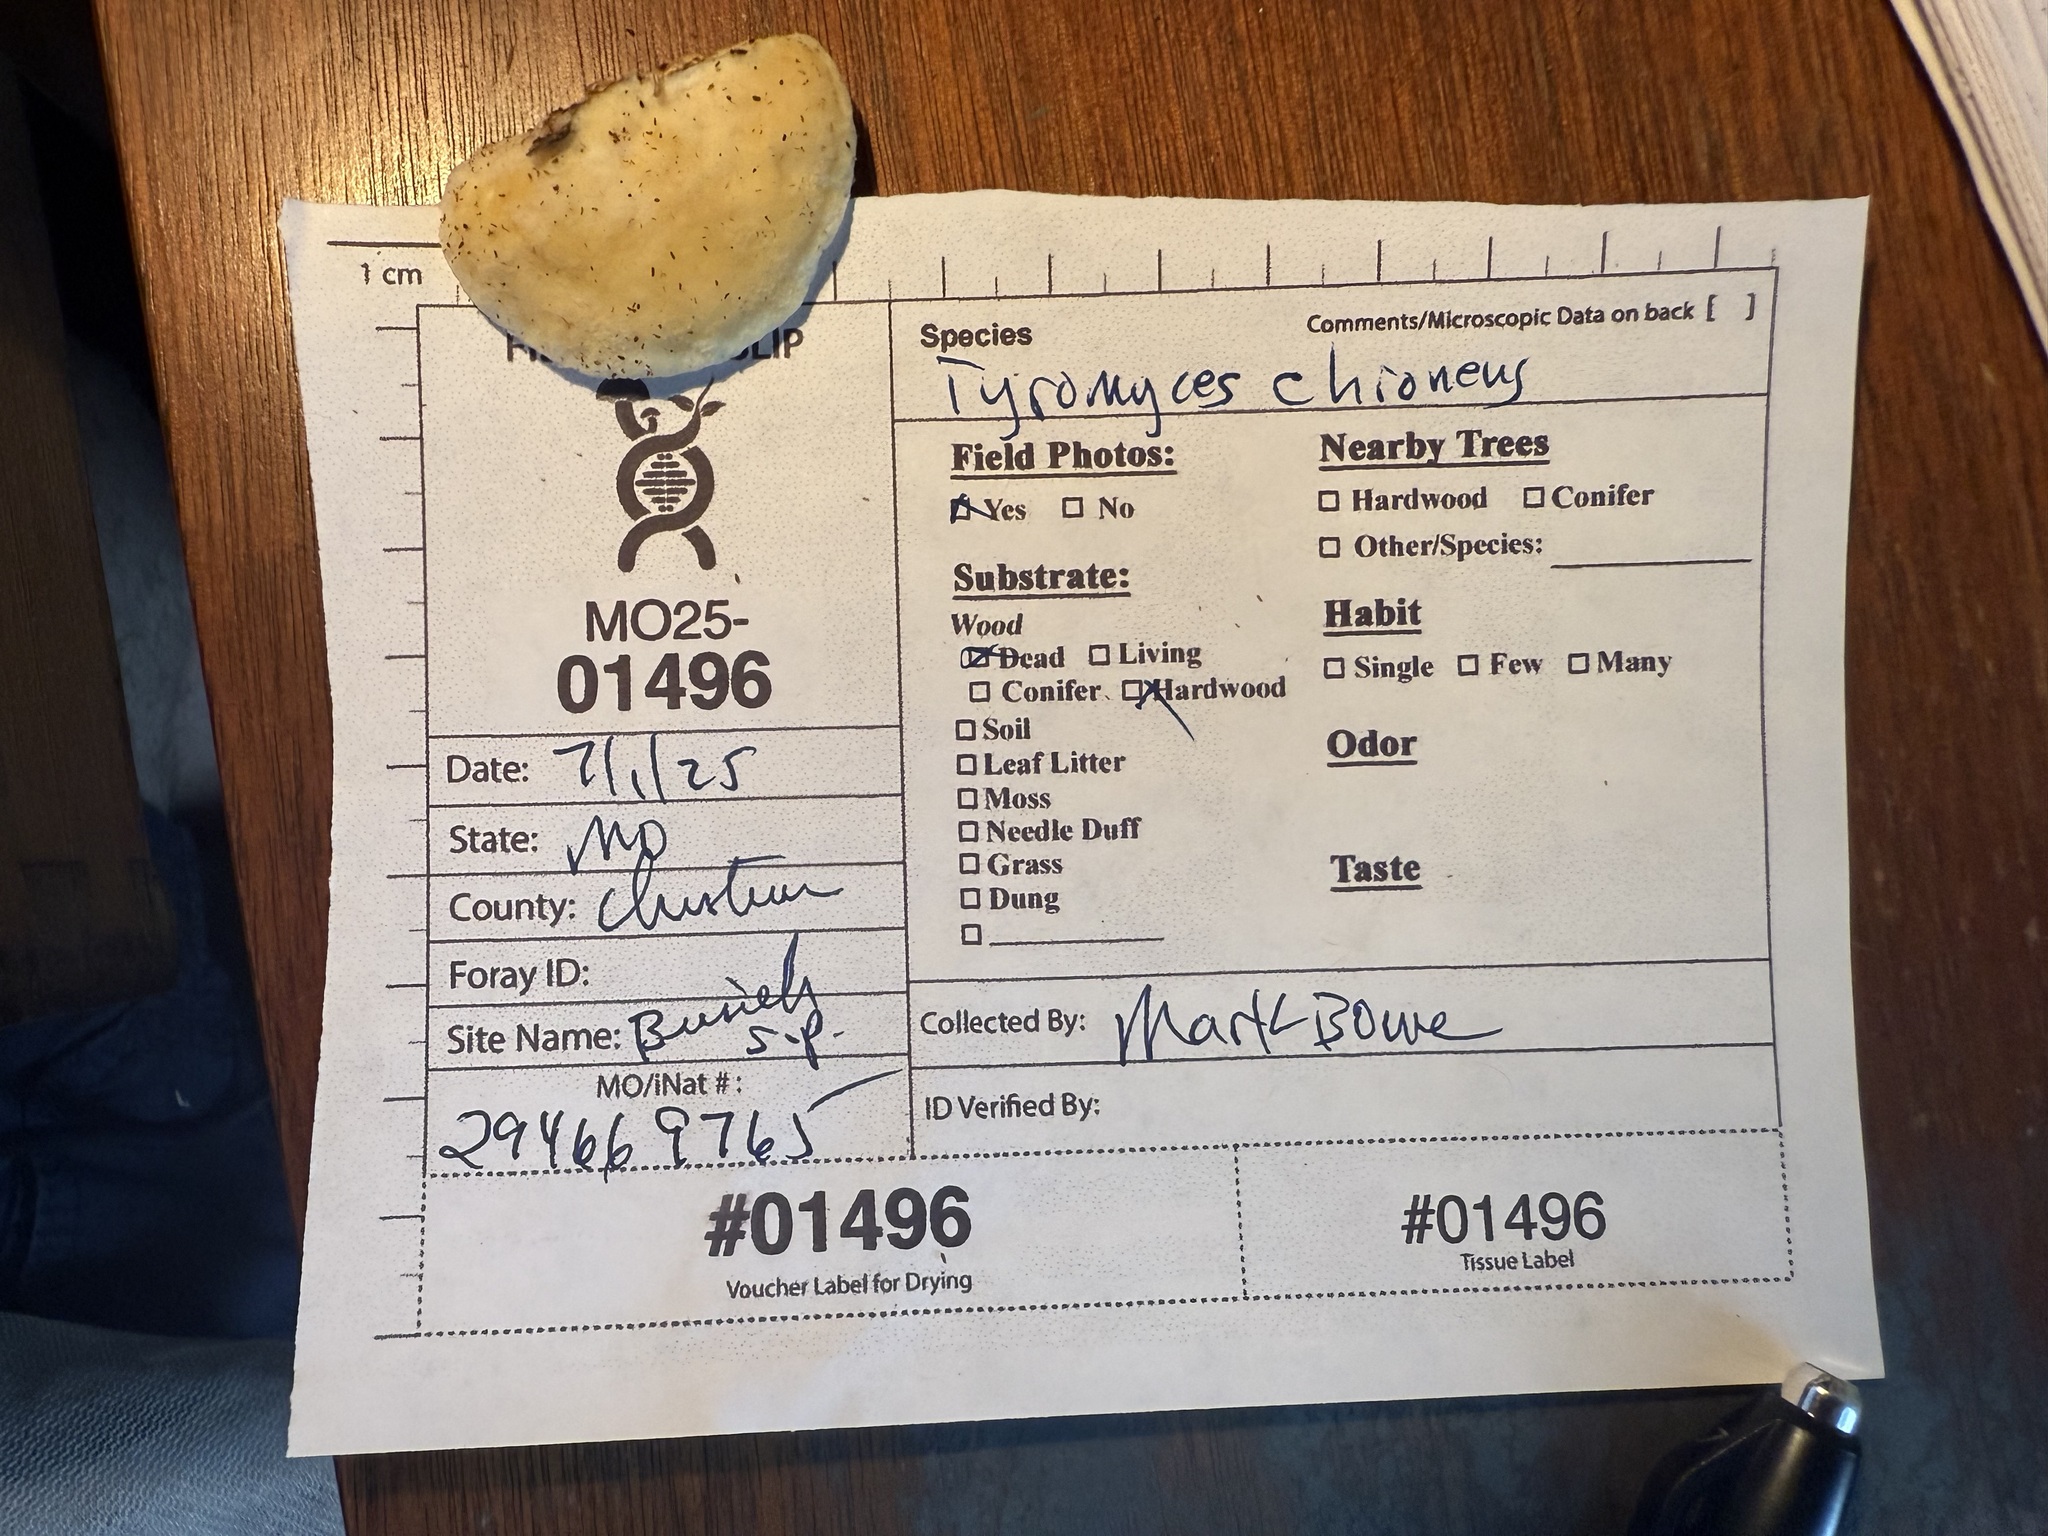 1 cm
SLIP
MO25-
01496
Date: 7/1/25
State: MO
County: Christian
Foray ID:
Site Name: Busiek
S.P.
MO/iNat #:
294669765
Species
Comments/Microscopic Data on back [ ]
Tyromyces chioneus
Field Photos:
Yes No
Substrate:
Wood
Dead Living
Conifer Hardwood
Soil
Leaf Litter
Moss
Needle Duff
Grass
Dung
Nearby Trees
Hardwood Conifer
Other/Species:
Habit
Single Few Many
Odor
Taste
Collected By: Mark Bowe
ID Verified By:
#01496
Voucher Label for Drying
#01496
Tissue Label